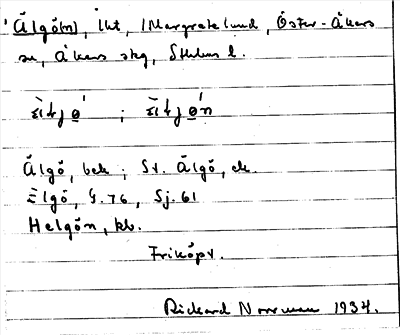 Älgö(n), lht, (Margretelund, Öster-Åkers
sn, Åkers skg, Sthlms l.
Älgö, bek; St. Älgö, ek.
Elgö, G. 76, Sj. 61
Helgön, kb.
Friköpt.
Rickard Norrman 1934.